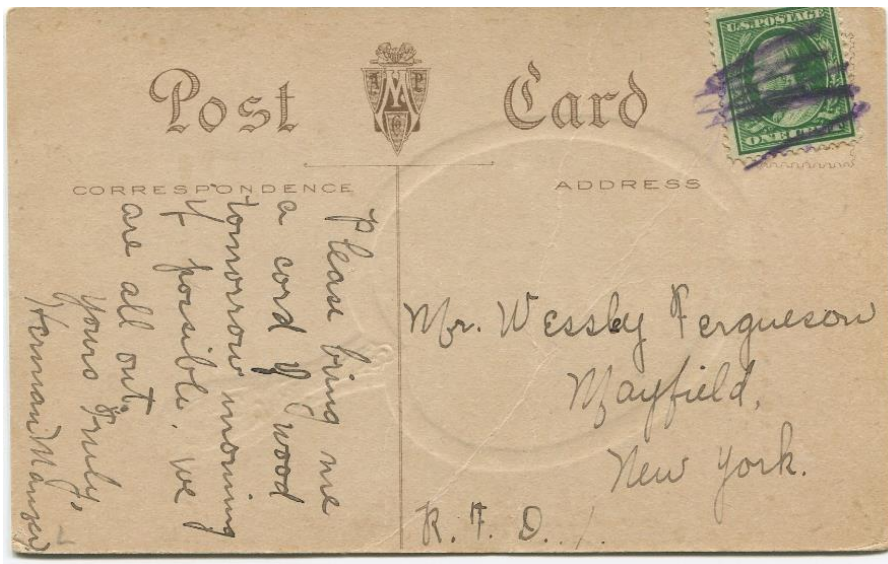 Post Card
U.S. POSTAGE
ONE CENT
CORRESPONDENCE
ADDRESS
Please bring me
a cord of wood
tomorrow morning
if possible. we
are all out.
Yours Truly,
Herman
Mr. Wessley Fergueson
Mayfield,
New York.
R. F. D. 1.